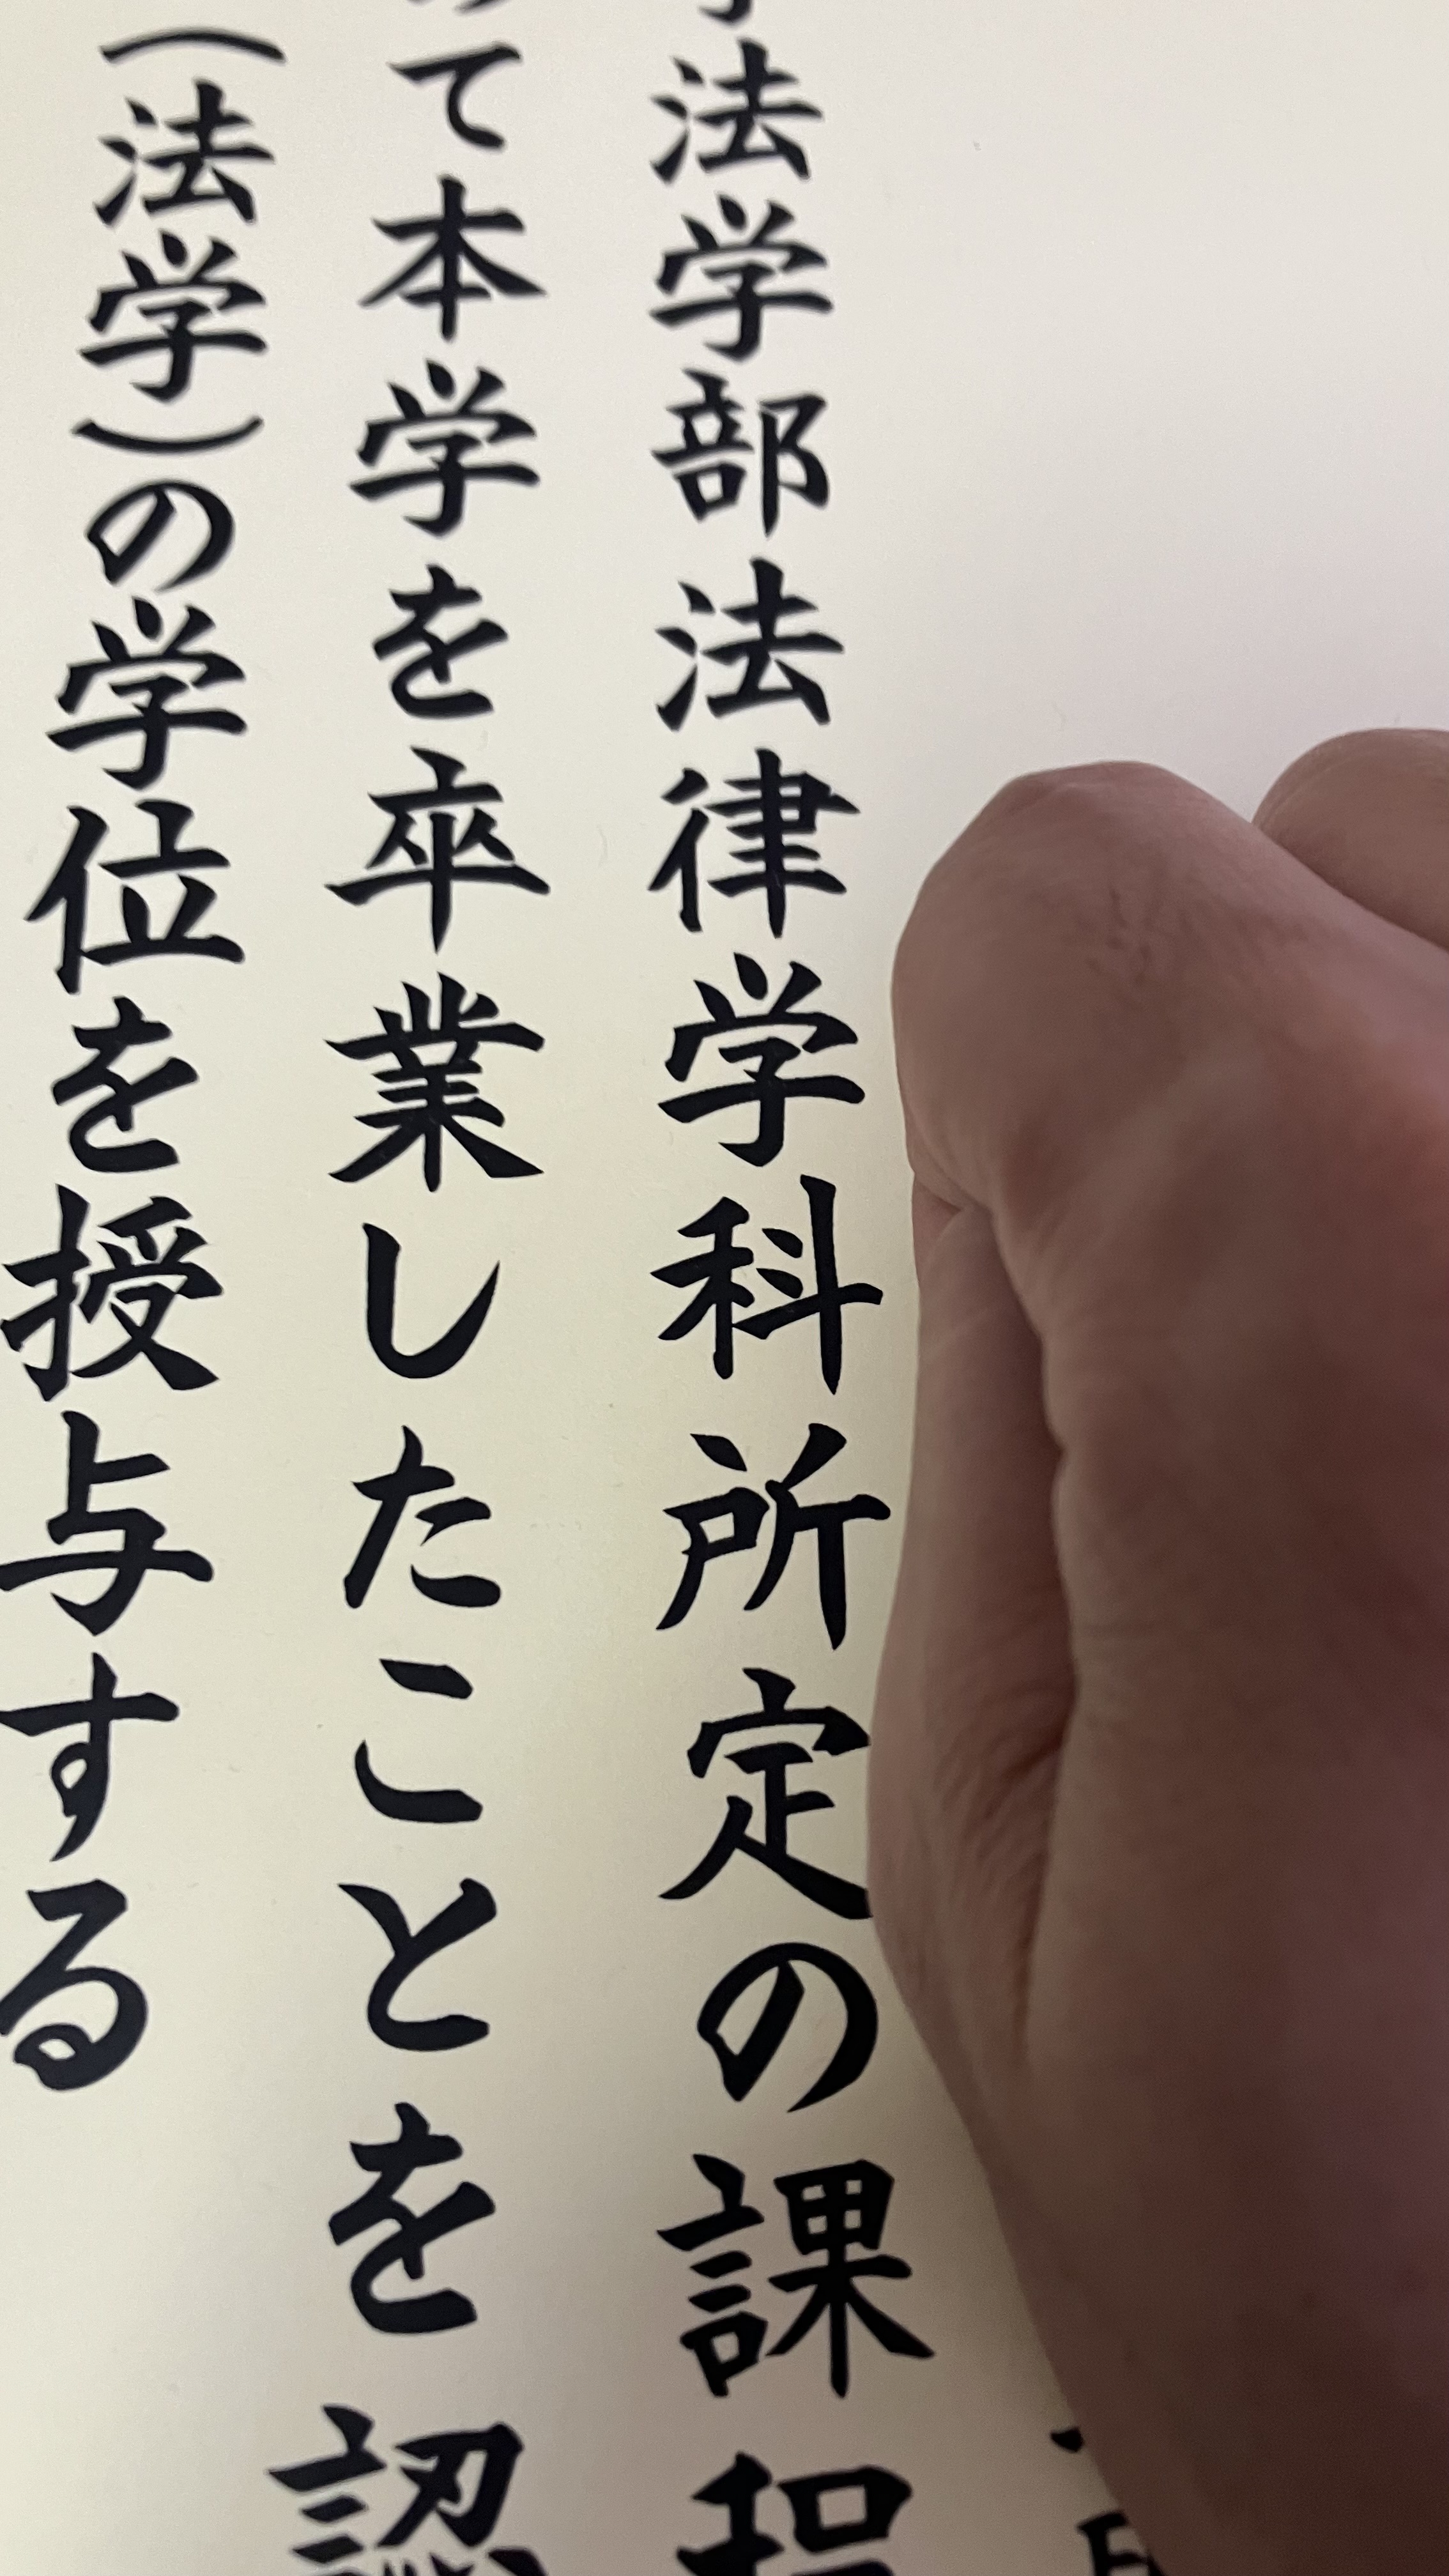 法学部法律学科所定の課程
て本学を卒業したことを認
（法学）の学位を授与する